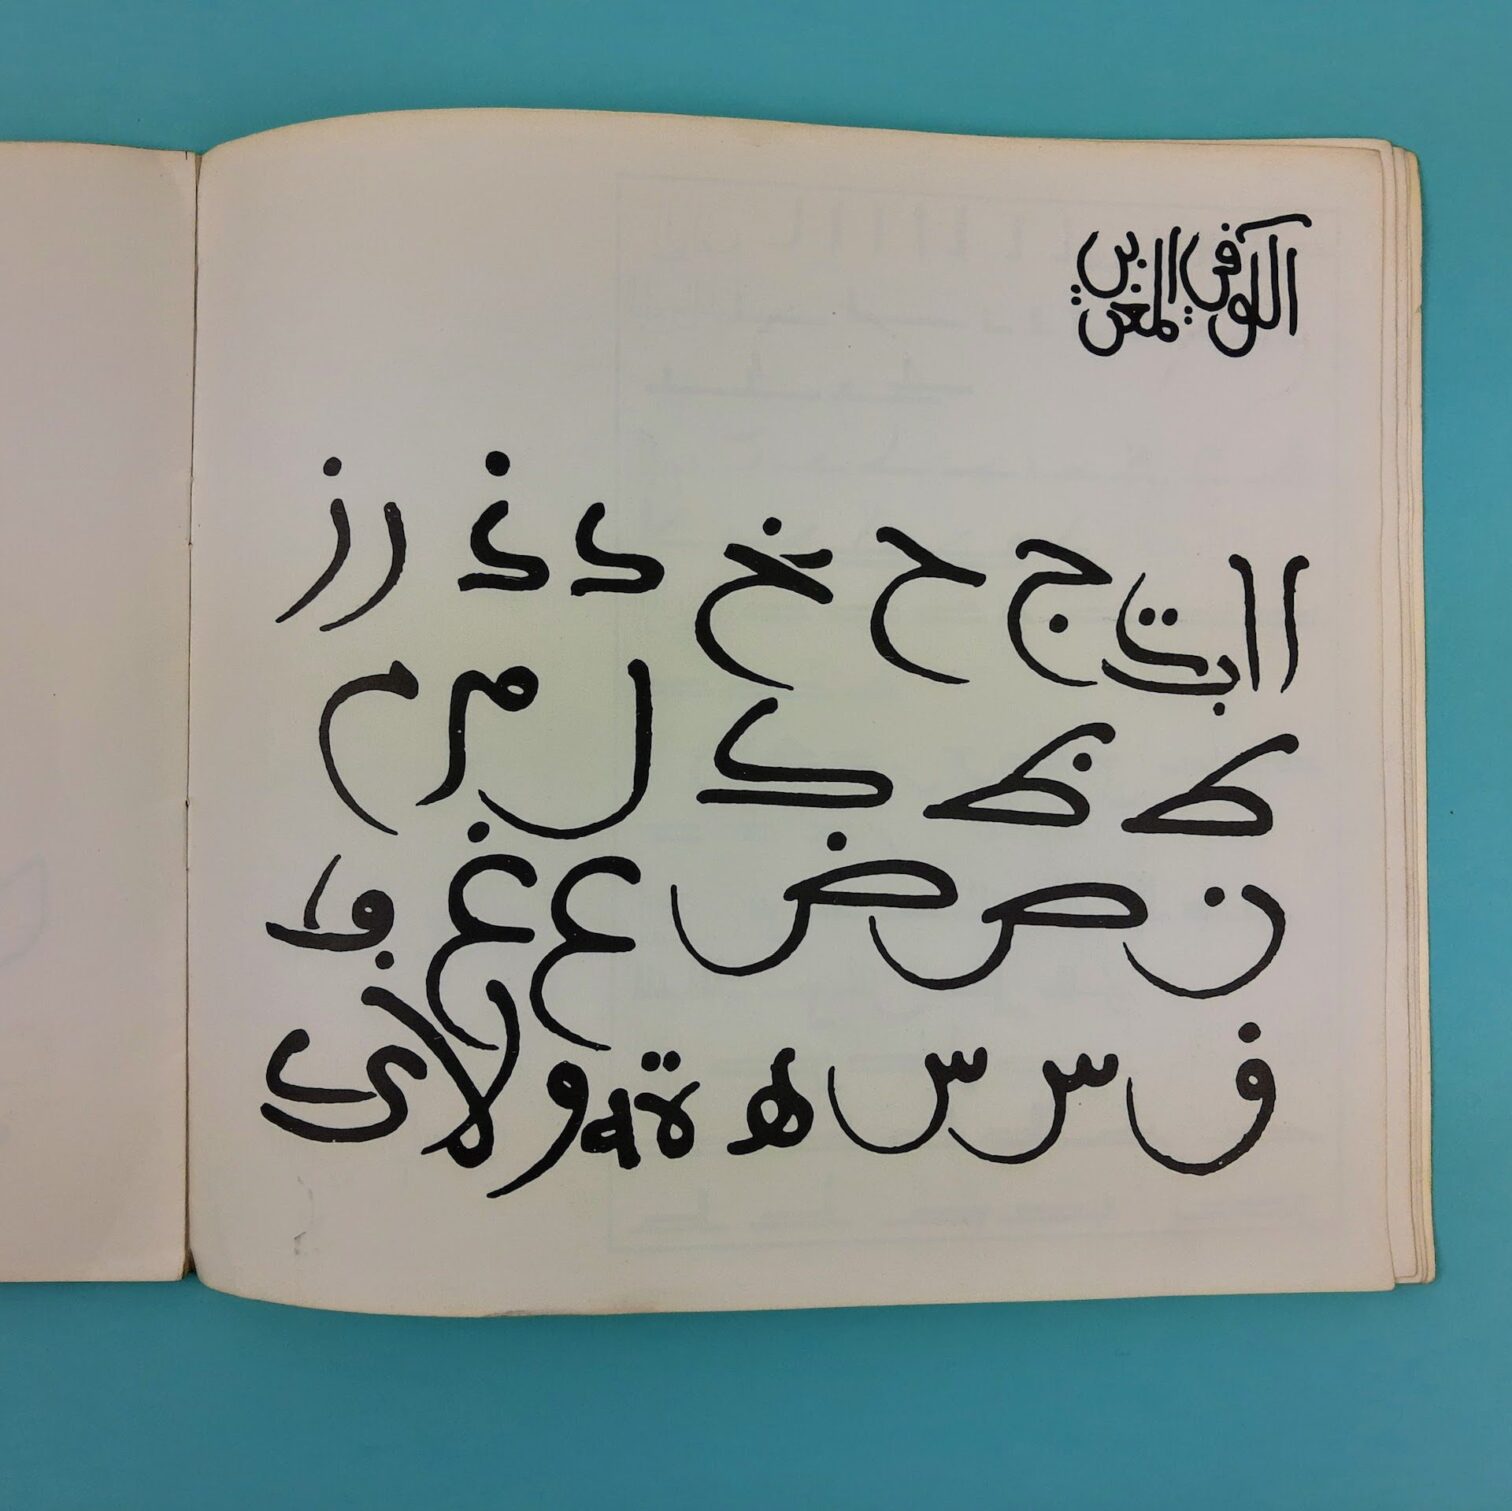 الكوفي المغربي
ا ا ب ت ج ح خ د ذ ر ز
ط ظ ك ل م م
ن ص ض ع غ
ف س س ه ة و لا ي